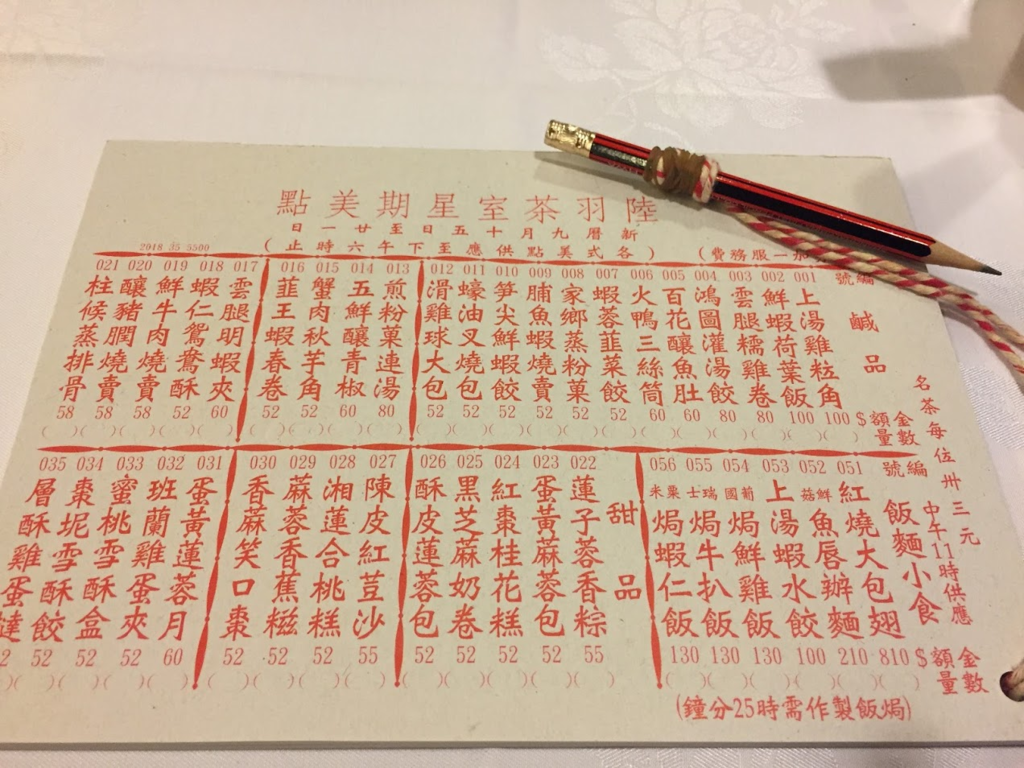 陸羽茶室星期美點
新曆九月十五日至廿一日
(各式美點供應至下午六時止)
加一服務費)
2018 35 5500
鹹品
編號
金額數量 $
001 上湯雞粒角 100 ( )
002 鮮蝦荷葉飯 100 ( )
003 雲腿糯雞卷 80 ( )
004 鴻圖灌湯餃 80 ( )
005 百花釀魚肚 60 ( )
006 火鴨三絲筒 60 ( )
007 蝦蓉韮菜餃 52 ( )
008 家鄉蒸粉菓 52 ( )
009 脯魚蝦燒賣 52 ( )
010 筍尖鮮蝦餃 52 ( )
011 蠔油叉燒包 52 ( )
012 滑雞球大包 52 ( )
013 煎粉菓連湯 80 ( )
014 五鮮釀青椒 60 ( )
015 蟹肉秋芋角 52 ( )
016 韮王蝦春卷 52 ( )
017 雲腿明蝦夾 60 ( )
018 蝦仁鴛鴦酥 52 ( )
019 鮮牛肉燒賣 58 ( )
020 釀豬膶燒賣 58 ( )
021 柱候蒸排骨 58 ( )
名茶每位卅三元
中午11時供應
飯麵小食
編號
金額數量 $
051 紅燒大包翅 810 ( )
052 鮮菇魚唇辦麵 210 ( )
053 上湯蝦水餃 100 ( )
054 葡國焗鮮雞飯 130 ( )
055 瑞士焗牛扒飯 130 ( )
056 粟米焗蝦仁飯 130 ( )
(焗飯製作需時25分鐘)
甜品
022 蓮子蓉香粽 55 ( )
023 蛋黃麻蓉包 52 ( )
024 紅棗桂花糕 52 ( )
025 黑芝麻奶卷 52 ( )
026 酥皮蓮蓉包 52 ( )
027 陳皮紅荳沙 55 ( )
028 湘蓮合桃糕 52 ( )
029 蔴蓉香蕉糍 52 ( )
030 香蔴笑口棗 52 ( )
031 蛋黃蓮蓉月 60 ( )
032 班蘭雞蛋夾 52 ( )
033 蜜桃雪酥盒 52 ( )
034 棗坭雪酥餃 52 ( )
035 層酥雞蛋撻 2 ( )